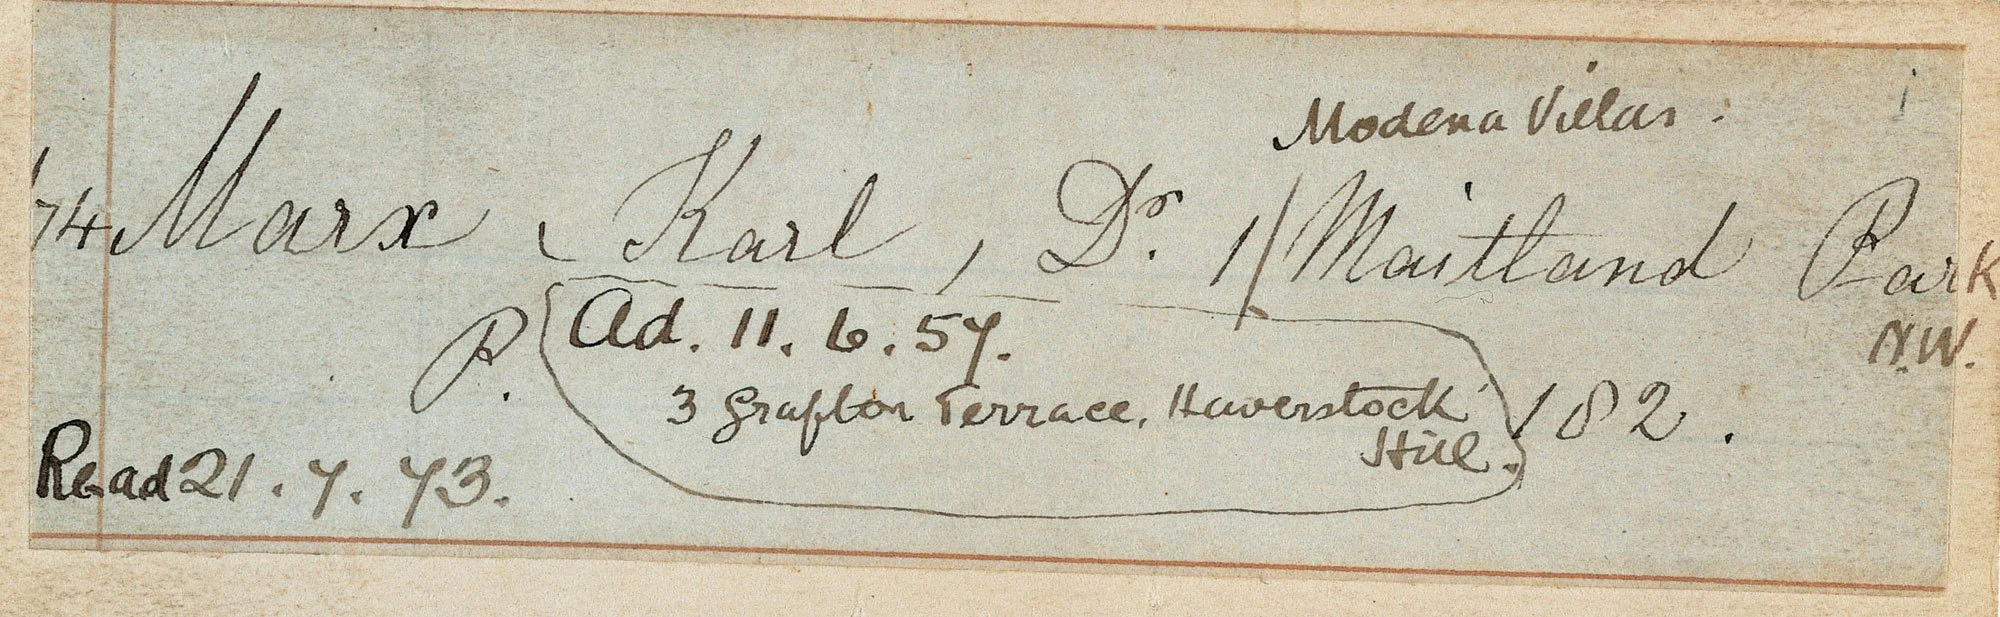 Modena Villas.
74 Marx, Karl, Dr. 1/Maitland Park
N.W.
P. Ad. 11. 6. 57.
3 Grafton Terrace, Haverstock
Hill. 182.
Read 21. 7. 73.